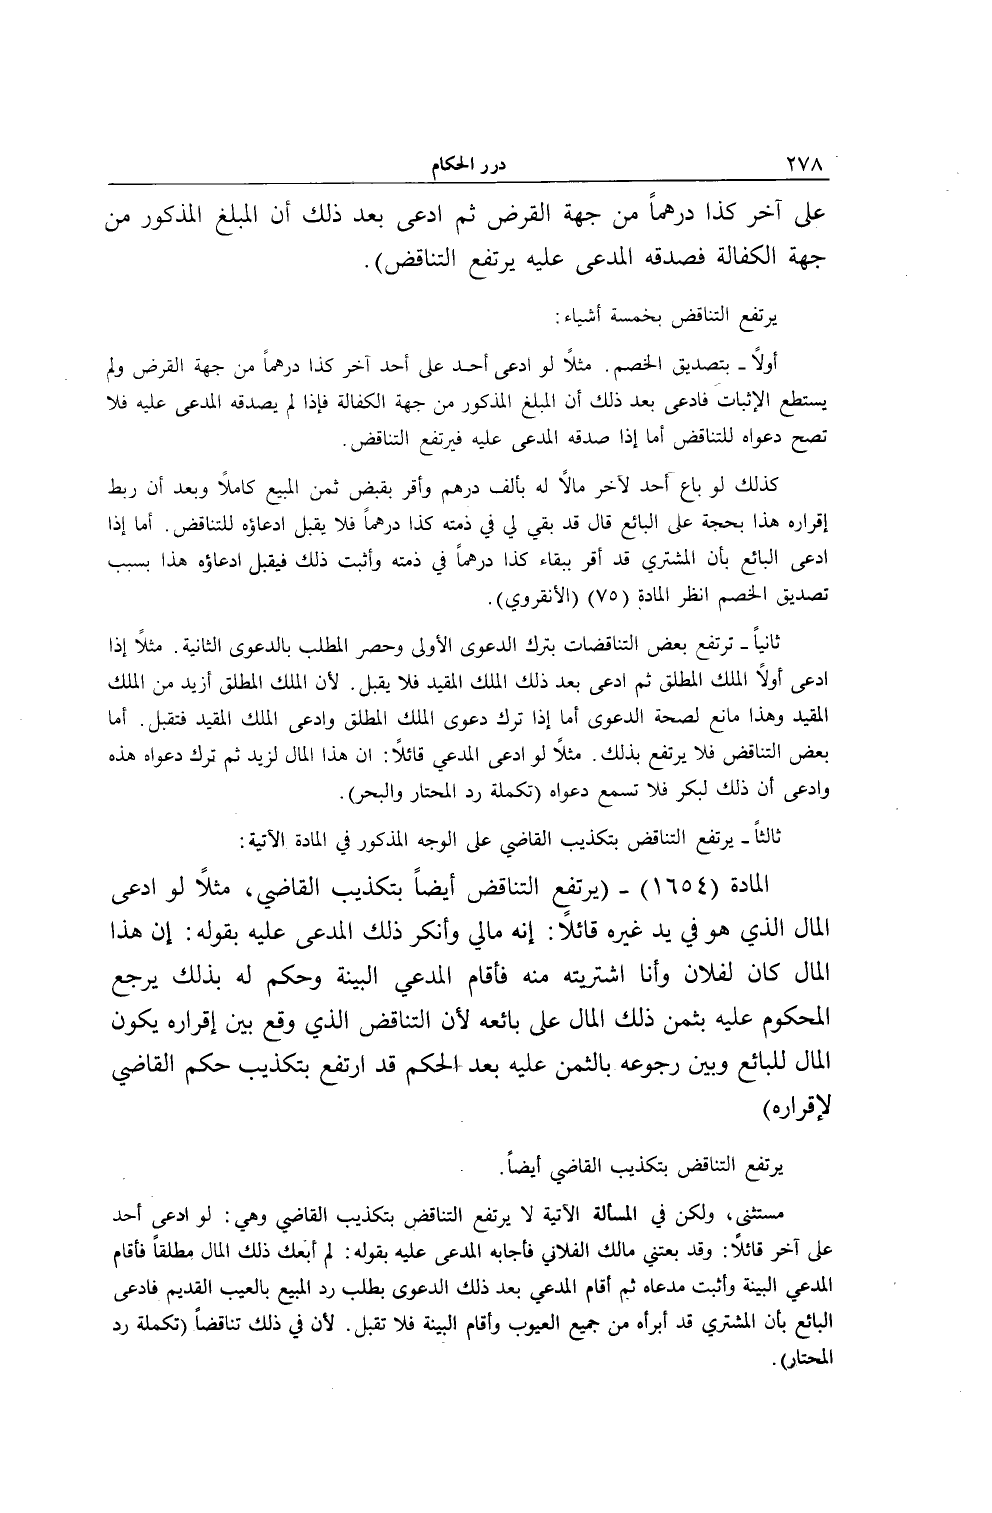 ٢٧٨
درر الحكام
على آخر كذا درهماً من جهة القرض ثم ادعى بعد ذلك أن المبلغ المذكور من
جهة الكفالة فصدقه المدعى عليه يرتفع التناقض).
يرتفع التناقض بخمسة أشياء:
أولاً ـ بتصديق الخصم. مثلًا لو ادعى أحد على أحد آخر كذا درهماً من جهة القرض ولم
يستطع الإثبات فادعى بعد ذلك أن المبلغ المذكور من جهة الكفالة فإذا لم يصدقه المدعى عليه فلا
تصح دعواه للتناقض أما إذا صدقه المدعى عليه فيرتفع التناقض.
كذلك لو باع أحد لآخر مالًا له بألف درهم وأقر بقبض ثمن المبيع كاملًا وبعد أن ربط
إقراره هذا بحجة على البائع قال قد بقي لي في ذمته كذا درهماً فلا يقبل ادعاؤه للتناقض. أما إذا
ادعى البائع بأن المشتري قد أقر ببقاء كذا درهماً في ذمته وأثبت ذلك فيقبل ادعاؤه هذا بسبب
تصديق الخصم انظر المادة (٧٥) (الأنقروي).
ثانياً ـ ترتفع بعض التناقضات بترك الدعوى الأولى وحصر المطلب بالدعوى الثانية. مثلًا إذا
ادعى أولًا الملك المطلق ثم ادعى بعد ذلك الملك المقيد فلا يقبل. لأن الملك المطلق أزيد من الملك
المقيد وهذا مانع لصحة الدعوى أما إذا ترك دعوى الملك المطلق وادعى الملك المقيد فتقبل. أما
بعض التناقض فلا يرتفع بذلك. مثلًا لو ادعى المدعي قائلًا: ان هذا المال لزيد ثم ترك دعواه هذه
وادعى أن ذلك لبكر فلا تسمع دعواه (تكملة رد المحتار والبحر).
ثالثاً ـ يرتفع التناقض بتكذيب القاضي على الوجه المذكور في المادة الآتية:
المادة (١٦٥٤) ـ (يرتفع التناقض أيضاً بتكذيب القاضي، مثلًا لو ادعى
المال الذي هو في يد غيره قائلًا: إنه مالي وأنكر ذلك المدعى عليه بقوله: إن هذا
المال كان لفلان وأنا اشتريته منه فأقام المدعي البينة وحكم له بذلك يرجع
المحكوم عليه بثمن ذلك المال على بائعه لأن التناقض الذي وقع بين إقراره يكون
المال للبائع وبين رجوعه بالثمن عليه بعد الحكم قد ارتفع بتكذيب حكم القاضي
لإقراره)
يرتفع التناقض بتكذيب القاضي أيضاً.
مستثنى، ولكن في المسألة الآتية لا يرتفع التناقض بتكذيب القاضي وهي: لو ادعى أحد
على آخر قائلًا: وقد بعتني مالك الفلاني فأجابه المدعى عليه بقوله: لم أبعك ذلك المال مطلقاً فأقام
المدعي البينة وأثبت مدعاه ثم أقام المدعي بعد ذلك الدعوى بطلب رد المبيع بالعيب القديم فادعى
البائع بأن المشتري قد أبرأه من جميع العيوب وأقام البينة فلا تقبل. لأن في ذلك تناقضاً (تكملة رد
المحتار).